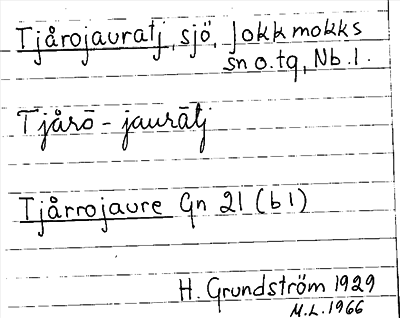 Tjårojauratj, sjö, Jokkmokks
sn o. tg, Nb. l.
Tjårō - jaurātj
Tjårrojaure Gn 21 (b1)
H. Grundström 1929
M.L. 1966